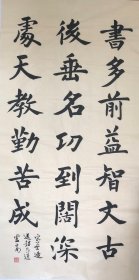 書多前益智大古
後垂名功到闊深
處天教勤苦成